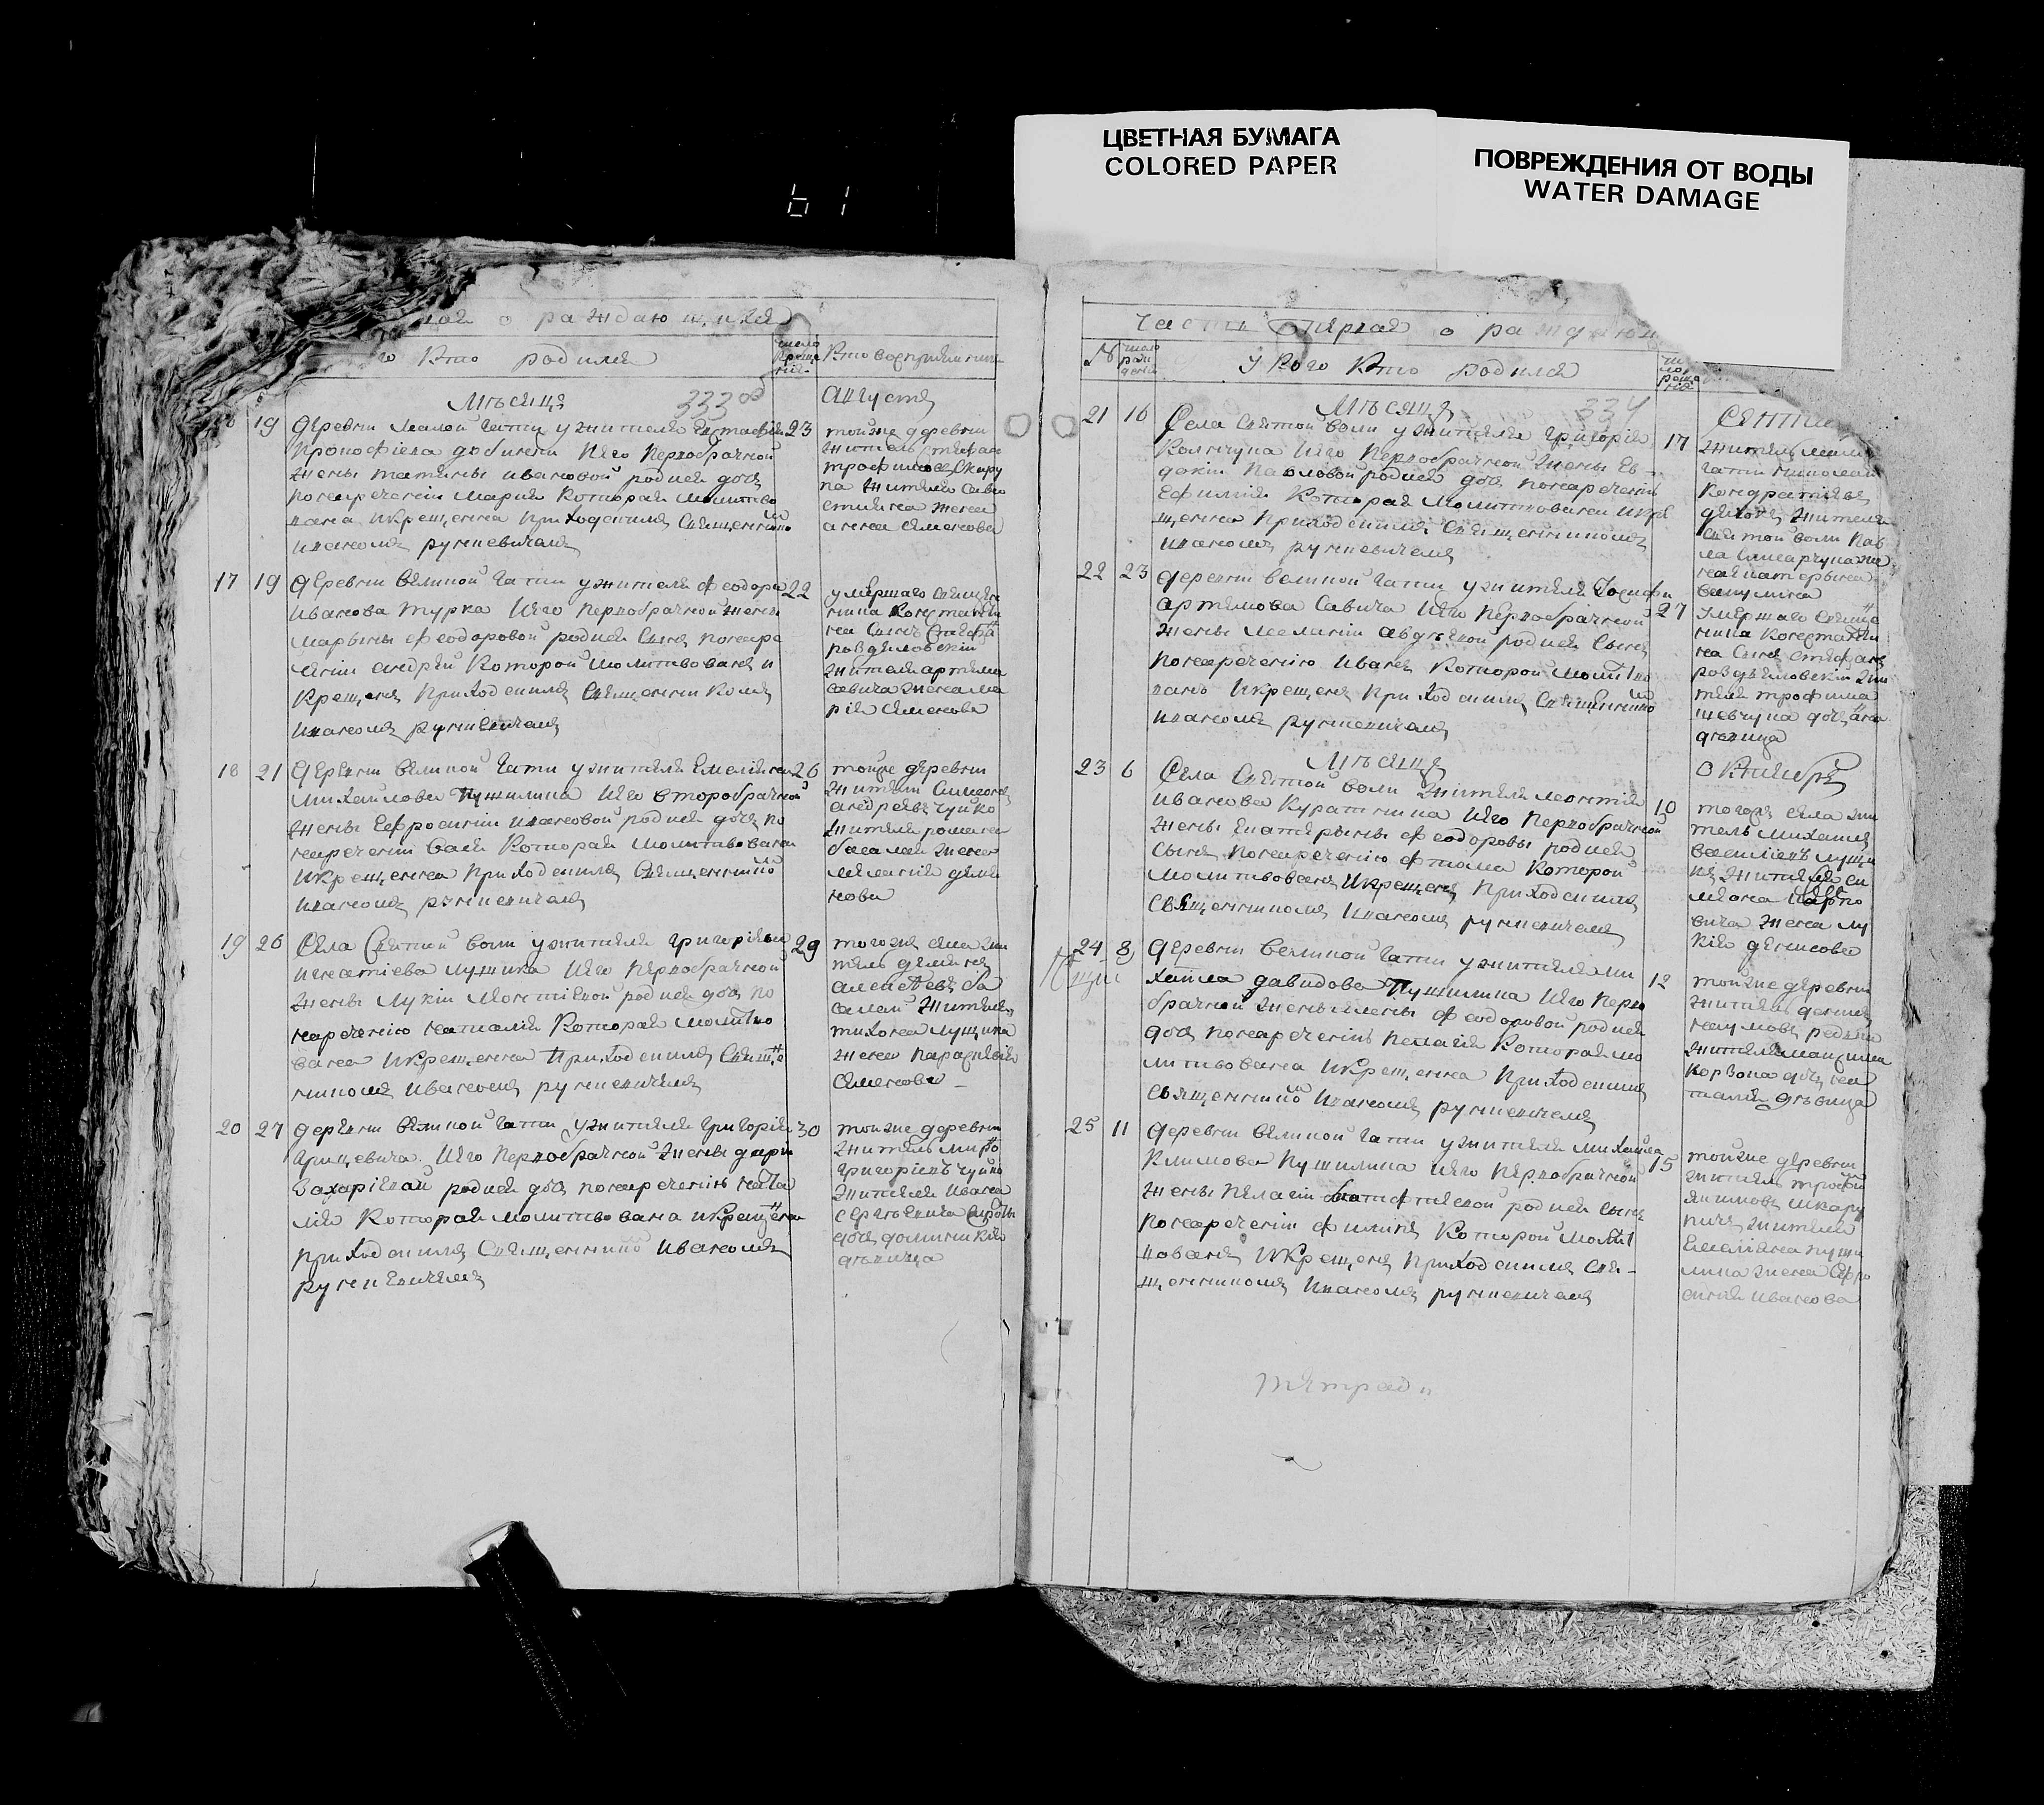 ЦВЕТНАЯ БУМАГА
COLORED PAPER
ПОВРЕЖДЕНИЯ ОТ ВОДЫ
WATER DAMAGE
61
о раждающихся
Кто родился
Кто восприемники
Мѣсяца
333
Августа
19 Деревни Малой Гати у жителя
23
Прокофіева его первобрачной
жены Татіаны Ивановой родися дочь
по наречении Марія которая молитво
вана и крещенна приходскимъ священнико
Иоанномъ Румпевичемъ
тойже деревни
житель Стефанъ
Трофимовъ Скару
па жителя Сава
жена
Анна Семенова
17 19 Деревни Великой Гати у жителя Феодора
22
Иванова Турка и его первобрачной жены
Марьины Феодоровой родися сынъ по наре
чении Андрей которой молитвованъ и
крещенъ приходскимъ священникомъ
Иоанномъ Румпевичемъ
умершаго священ
ника Константи
на сынъ Стефа
Роздяловскій
жителя Артема
Савича жена Ма
рія Семенова
18 21 Деревни Великой Гати у жителя Емеліана
26
Михайлова Пушилина и его второбрачной
жены Ефросиніи Ивановой родися дочь по
наречении Васа которая молитвована
и крещенна приходскимъ священнико
Иоанномъ Румпевичемъ
тойже деревни
житель Симеонъ
Андреевъ Чуйко
жителя Романа
Басалая жена
Меланія Деми
нова
19 26 Села Святой Воли у жителя Григорія
29
Игнатіева Лущика и его первобрачной
жены Лукіи Леонтіевой родися дочь по
наречению Наталія которая молитво
вана и крещенна приходскимъ священ
никомъ Иваномъ Румпевичемъ
тогожъ села жи
тель
Алексѣевъ Ба
салай жителя
Тихона Лущика
жена Параскевія
Семенова
20 27 Деревни Великой Гати у жителя Григорія
30
Грицевича и его первобрачной жены Дарьи
Захаріевой родися дочь по наречению Ната
лія которая молитвована и крещенна
приходскимъ священнико Иваномъ
Румпевичемъ
тойже деревни
житель
Григоріевъ Чуйко
жителя Ивана
Сергѣевича
дочь Доминикія
дѣвица
Часть первая о раждаю
№
У кого кто родился
Мѣсяца
334
21 16 Села Святой Воли у жителя Григорія
17
Колчуна и его первобрачной жены Ев-
докіи Павловой родися дочь по наречении
Ефимія которая молитвована и кре
щенна приходскимъ священникомъ
Иоанномъ Румпевичемъ
житель Малой
Гати Николай
Кондратіевъ
жителя
Святой Воли Пав
ла
22 23 Деревни Великой Гати у жителя Іосифа
27
Артемова Савича и его первобрачной
жены Меланіи Авдѣевой родися сынъ
по наречению Иванъ которой молитво
ванъ и крещенъ приходскимъ священнико
Иоанномъ Румпевичемъ
умершаго священ
ника Константи
на сынъ Стефанъ
Роздяловскій жи
теля Трофима
Шевчука дочь Анна
дѣвица
Мѣсяца
Октября
23 6 Села Святой Воли жителя Леонтія
10
Иванова Куратника и его первобрачной
жены Екатерины Феодоровы родися
сынъ по наречению Фтома которой
молитвованъ и крещенъ приходскимъ
священникомъ Иоанномъ Румпевичемъ
тогожъ села жи
тель Михаилъ
Василіевъ Лущи
къ жителя Си
меона Карпо
вича жена Лу
кія Денисова
24 8 Деревни Великой Гати у жителя Ми
12
хайла Давидова Пушилина и его перво
брачной жены Елены Феодоровой родися
дочь по наречению Пелагія которая мо
литвована и крещенна приходскимъ
священнико Иоанномъ Румпевичемъ
тойже деревни
житель Данила
Наумовъ
жителя Максима
Корвона дочь На
талія дѣвица
25 11 Деревни Великой Гати у жителя Михайла
15
Климова Пушилина и его первобрачной
жены Пелагіи родися сынъ
по наречении Филипъ которой молит
вованъ и крещенъ приходскимъ свя-
щенникомъ Иоанномъ Румпевичемъ
тойже деревни
житель Трофи
Якимовъ Шкару
пичъ жителя
Емеліана Пуши
лина жена Ефро
синія Иванова